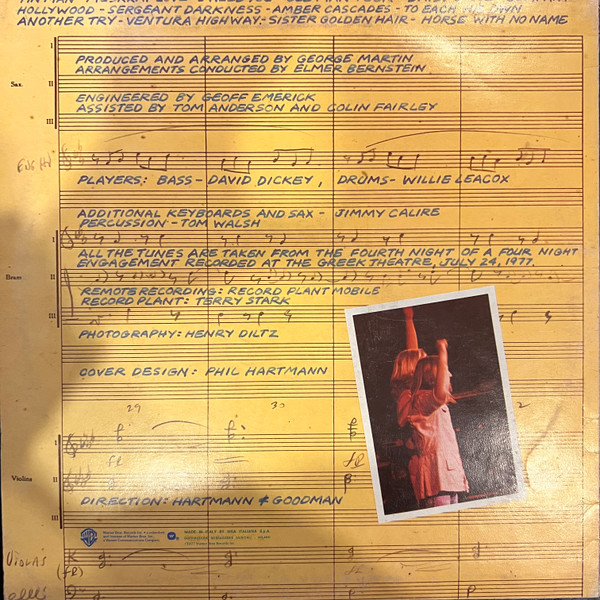 HOLLYWOOD - SERGEANT DARKNESS - AMBER CASCADES - TO EACH HIS OWN
ANOTHER TRY - VENTURA HIGHWAY - SISTER GOLDEN HAIR - HORSE WITH NO NAME
I
PRODUCED AND ARRANGED BY GEORGE MARTIN
ARRANGEMENTS CONDUCTED BY ELMER BERNSTEIN
Sax.
II
ENGINEERED BY GEOFF EMERICK
ASSISTED BY TOM ANDERSON AND COLIN FAIRLEY
III
ENG HN
PLAYERS: BASS - DAVID DICKEY, DRUMS - WILLIE LEACOX
ADDITIONAL KEYBOARDS AND SAX - JIMMY CALIRE
PERCUSSION - TOM WALSH
I
ALL THE TUNES ARE TAKEN FROM THE FOURTH NIGHT OF A FOUR NIGHT
ENGAGEMENT RECORDED AT THE GREEK THEATRE, JULY 24, 1977.
Brass
II
REMOTE RECORDING: RECORD PLANT MOBILE
RECORD PLANT: TERRY STARK
III
PHOTOGRAPHY: HENRY DILTZ
COVER DESIGN: PHIL HARTMANN
29
30
2
I
Violins
II
DIRECTION: HARTMANN & GOODMAN
III
MADE IN ITALY BY WEA ITALIANA S.p.A.
VIOLAS
CELLS